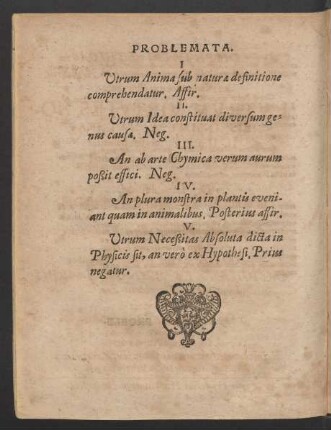 PROBLEMATA.
I
Utrum Anima sub naturæ definitione
comprehendatur. Affir.
II.
Utrum Idea constituat diversum ge-
nus causæ. Neg.
III.
An ab arte Chymica verum aurum
possit effici. Neg.
IV.
An plura monstra in plantis eveni-
ant quam in animalibus. Posterius affir.
V.
Utrum Necessitas Absoluta dicta in
Physicis sit, an verò ex Hypothesi. Prius
negatur.